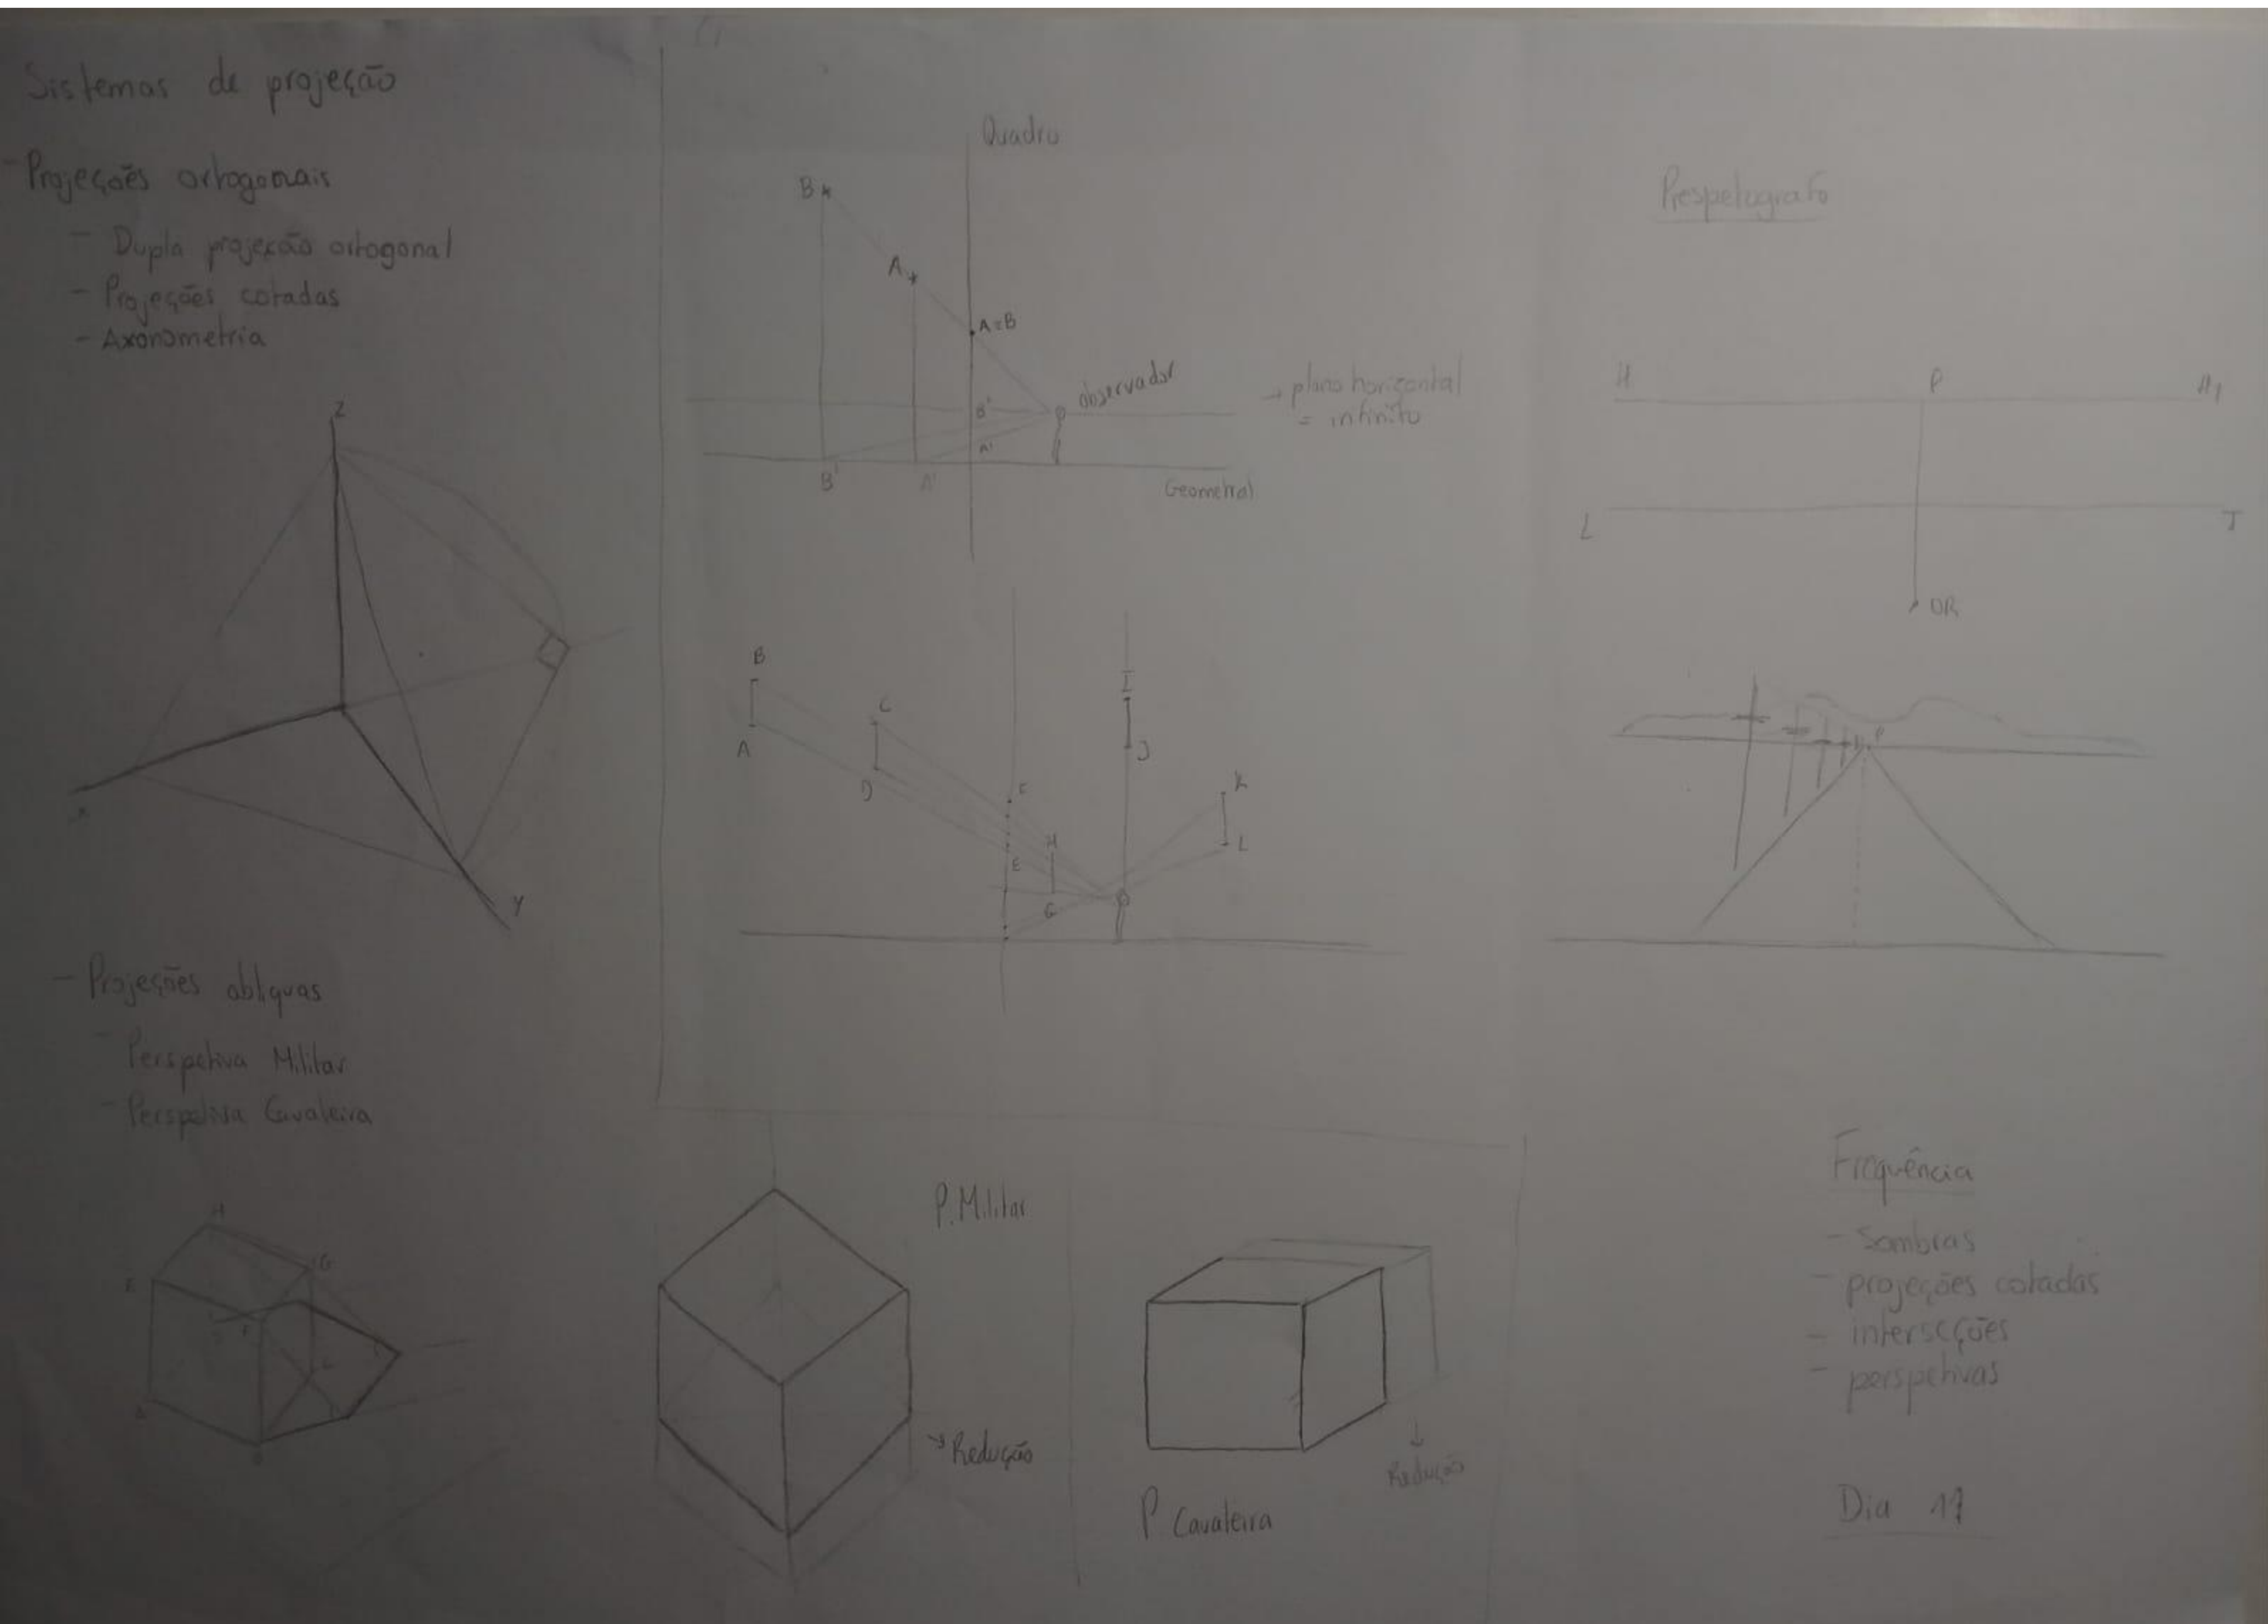 Sistemas de projeção
- Projeções ortogonais
- Dupla projeção ortogonal
- Projeções cotadas
- Axonometria
Z
X
Y
- Projeções obliquas
- Perspetiva Militar
- Perspetiva Cavaleira
H
G
E
F
C
A
B
Quadro
B
A
A≡B
observador
→ plano horizontal
= infinito
B'
A'
B'
A'
Geometral
B
A
C
D
F
E
H
G
I
J
K
L
P. Militar
→ Redução
P Cavaleira
Redução
Prespetografo
H
P
H1
L
T
OR
P
Frequência
- Sombras
- projeções cotadas
- intersções
- perspetivas
Dia 17